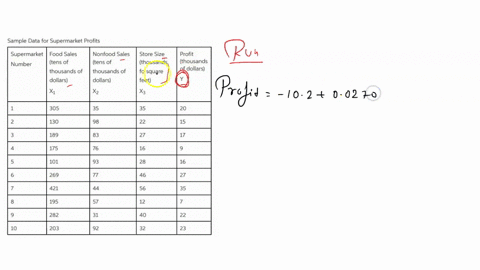 Sample Data for Supermarket Profits
Supermarket Number
Food Sales (tens of thousands of dollars) X₁
Nonfood Sales (tens of thousands of dollars) X₂
Store Size (thousands of square feet) X₃
Profit (thousands of dollars) Y
1 305 35 35 20
2 130 98 22 15
3 189 83 27 17
4 175 76 16 9
5 101 93 28 16
6 269 77 46 27
7 421 44 56 35
8 195 57 12 7
9 282 31 40 22
10 203 92 32 23
Run
Profit = -10.2 + 0.0270